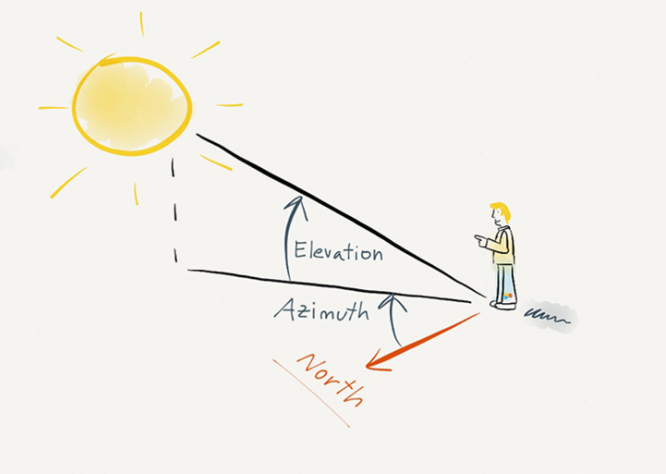 Elevation
Azimuth
North